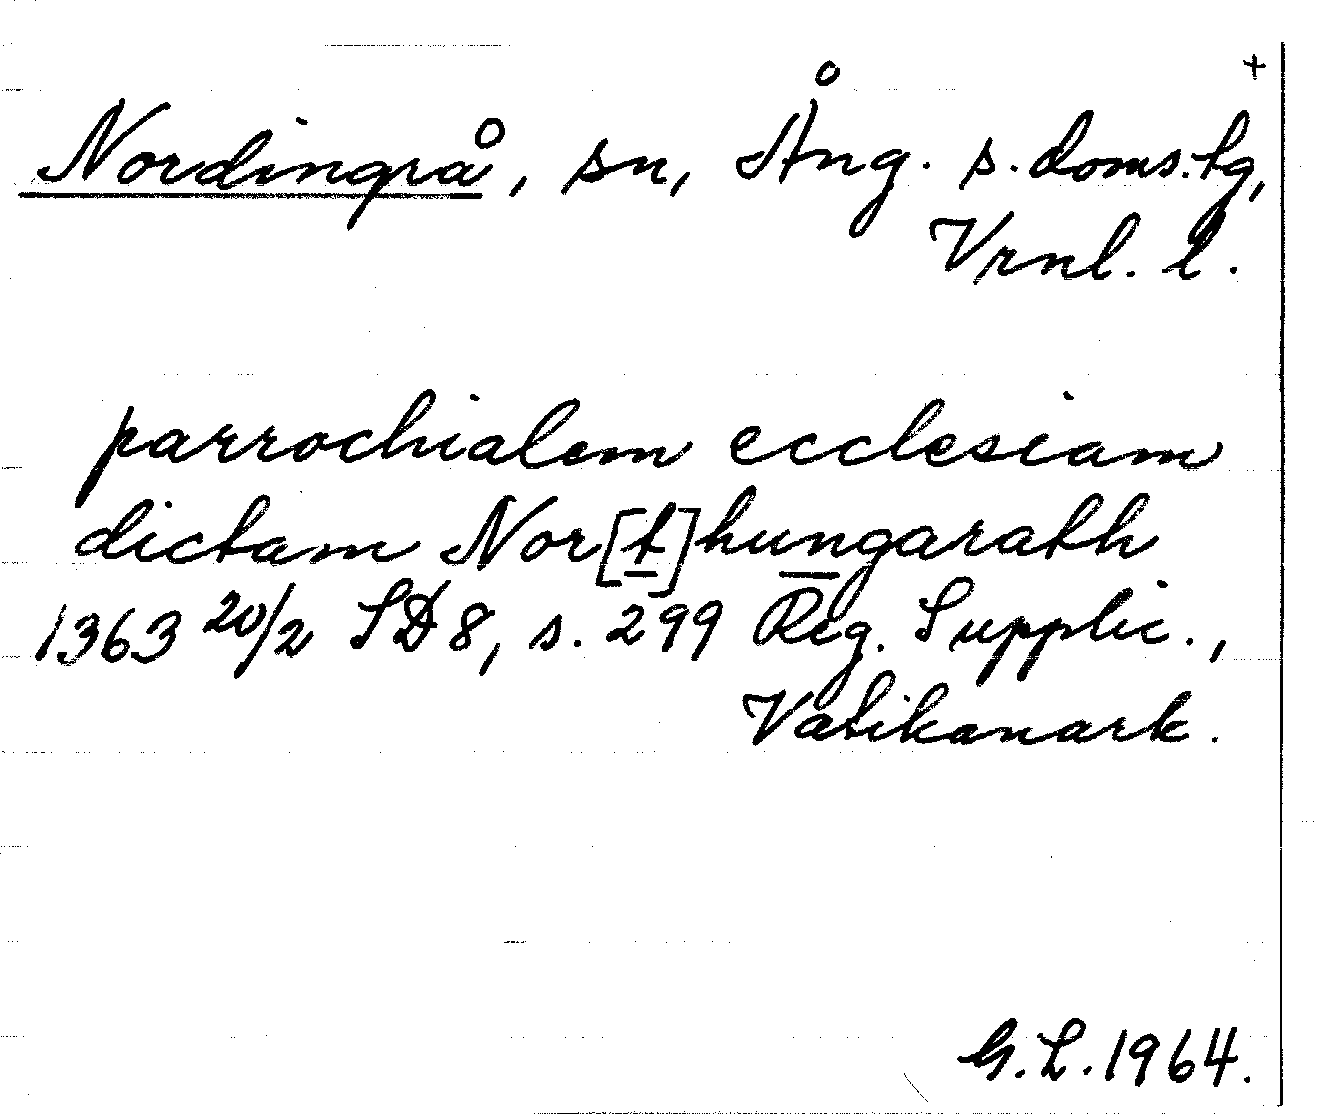 +
Nordingrå, sn, Ång. s. doms.tg,
Vrnl. l.
parrochialem ecclesiam
dictam Nor[t]hungarath
1363 20/2 SD 8, s. 299 Reg. Supplic.,
Vatikanark.
G.L. 1964.